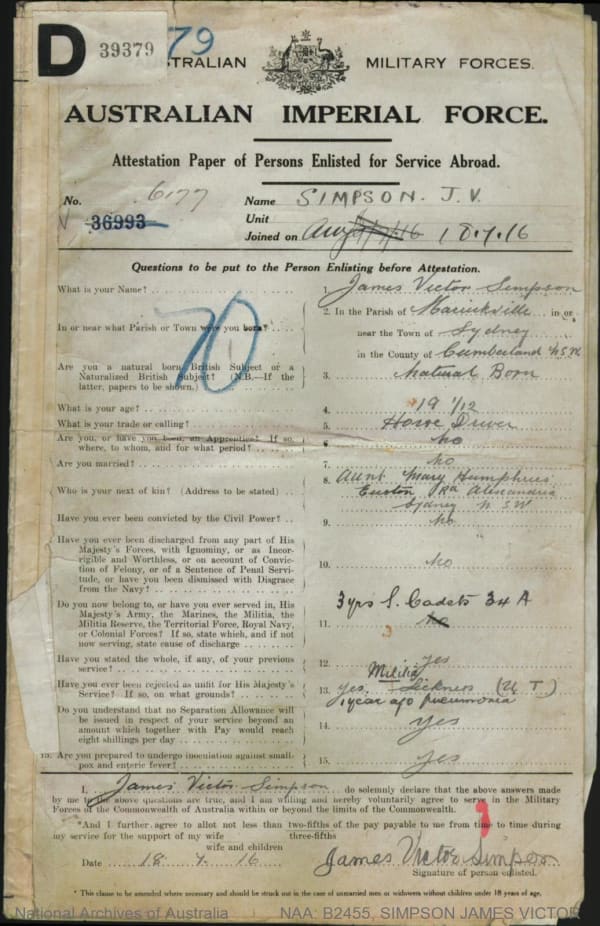 D 39379 79
AUSTRALIAN MILITARY FORCES.
AUSTRALIAN IMPERIAL FORCE.
Attestation Paper of Persons Enlisted for Service Abroad.
No. 6177 Name SIMPSON. J.V.
36993 Unit
Joined on 18.7.16
Questions to be put to the Person Enlisting before Attestation.
What is your Name? 1. James Victor Simpson
In or near what Parish or Town were you born? 2. In the Parish of Marickville in or
near the Town of Sydney
in the County of Cumberland N.S.W
70
Are you a natural born British Subject or a
Naturalized British Subject? (N.B.—If the
latter, papers to be shown.) 3. Natural Born
What is your age? 4. 19 1/12
What is your trade or calling? 5. Horse Driver
Are you, or have you been, an Apprentice? If so,
where, to whom, and for what period? 6. No
Are you married? 7. No
Who is your next of kin? (Address to be stated) 8. Aunt Mary Humphries
Euston Rd Alexandria
Sydney N S W
Have you ever been convicted by the Civil Power? 9. No
Have you ever been discharged from any part of His
Majesty's Forces, with Ignominy, or as Incor-
rigible and Worthless, or on account of Convic-
tion of Felony, or of a Sentence of Penal Servi-
tude, or have you been dismissed with Disgrace
from the Navy? 10. No
Do you now belong to, or have you ever served in, His
Majesty's Army, the Marines, the Militia, the
Militia Reserve, the Territorial Force, Royal Navy,
or Colonial Forces? If so, state which, and if not
now serving, state cause of discharge 11. 3 yrs S. Cadets 34 A
No
Have you stated the whole, if any, of your previous
service? 12. yes
Have you ever been rejected as unfit for His Majesty's
Service? If so, on what grounds? 13. yes. Militia Sickness (U T)
1 year ago pneumonia
Do you understand that no Separation Allowance will
be issued in respect of your service beyond an
amount which together with Pay would reach
eight shillings per day 14. yes
15. Are you prepared to undergo inoculation against small-
pox and enteric fever? 15. yes
I, James Victor Simpson do solemnly declare that the above answers made
by me to the above questions are true, and I am willing and hereby voluntarily agree to serve in the Military
Forces of the Commonwealth of Australia within or beyond the limits of the Commonwealth.
*And I further agree to allot not less than two-fifths of the pay payable to me from time to time during
three-fifths
my service for the support of my wife
wife and children
Date 18 7 16 James Victor Simpson
Signature of person enlisted.
* This clause to be amended where necessary and should be struck out in the case of unmarried men or widowers without children under 18 years of age.
National Archives of Australia NAA: B2455, SIMPSON JAMES VICTOR